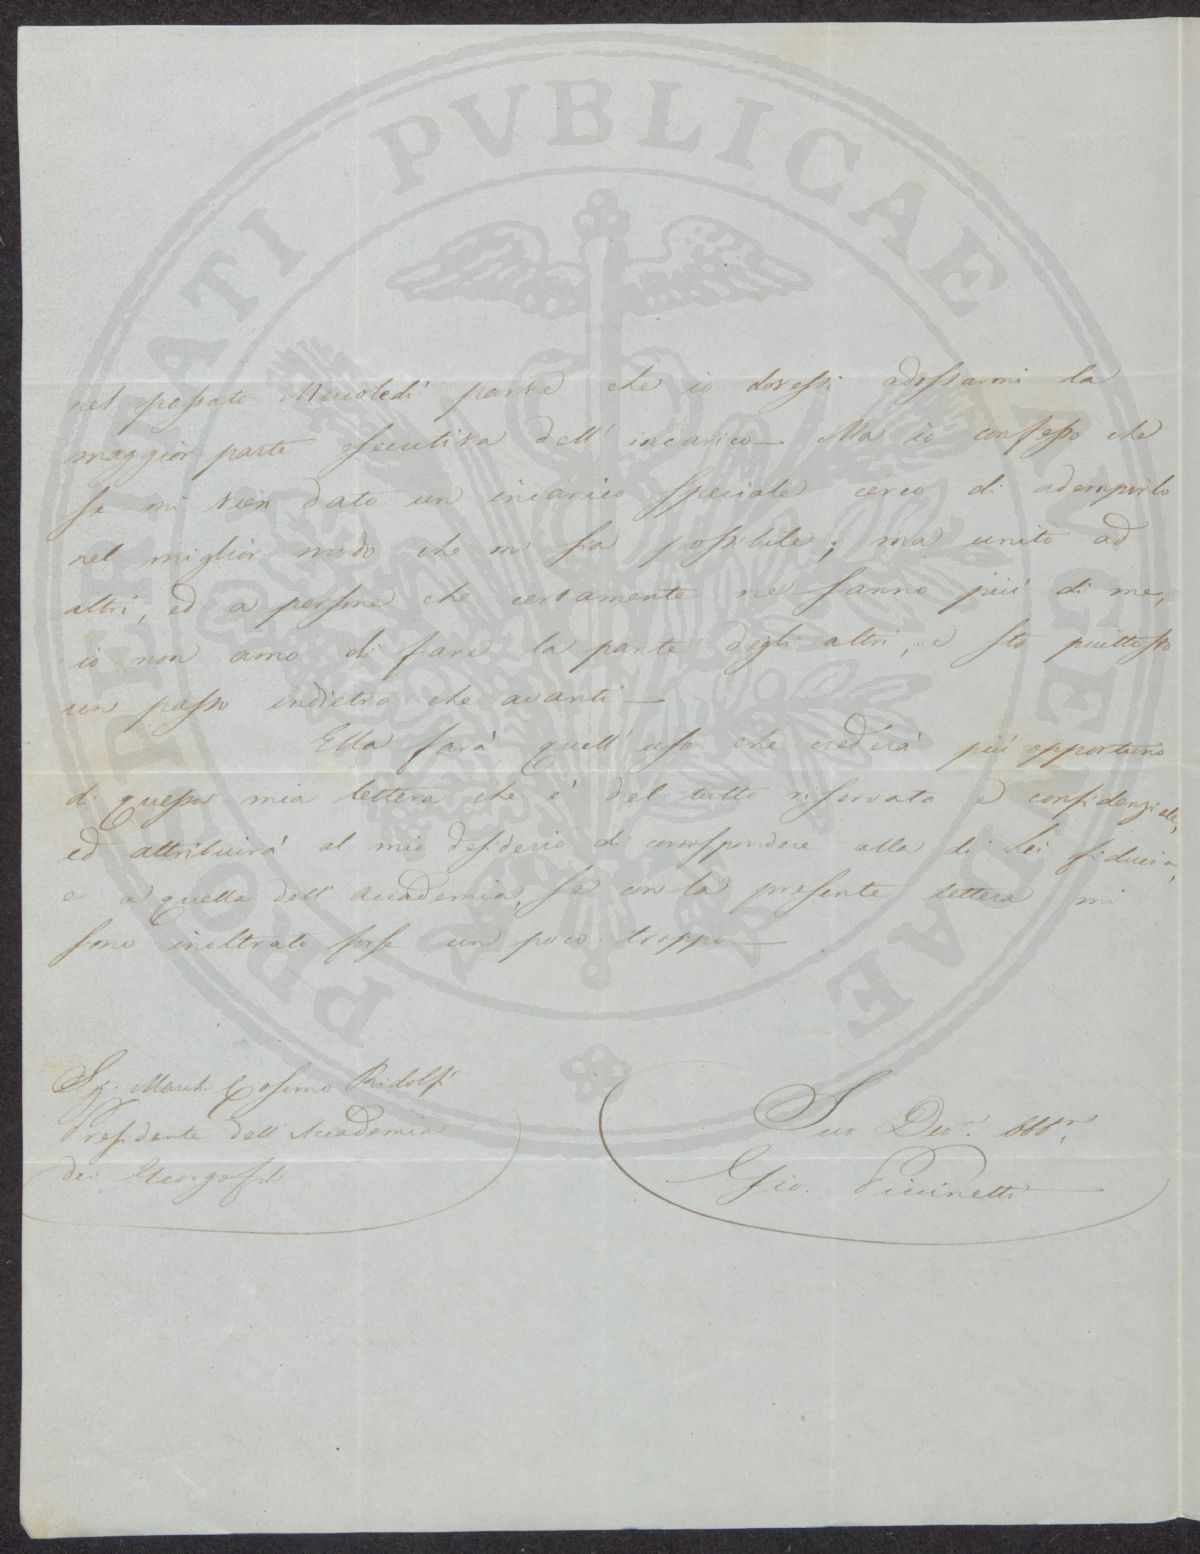 PROSPERITATI PVBLICAE AVGENDAE
nel passato Mercoledì parve che io dovessi adossarmi la
maggior parte esecutiva dell'incarico — Ma io confesso che
se mi vien dato un incarico speciale cerco di adempirlo
nel miglior modo che mi sia possibile; ma unito ad
altri, ed a persone che certamente ne sanno più di me,
io non amo di fare la parte degli altri, e sto piuttosto
un passo indietro che avanti —
Ella farà quell'uso che crederà più opportuno
di questa mia lettera che è del tutto riservata e confidenziale,
ed attribuirà al mio desiderio di corrispondere alla di Lei fiducia,
e a quella dell'Accademia, se con la presente lettera mi
sono inoltrato forse un poco troppo —
Sig. March. Cosimo Ridolfi
Presidente dell'Accademia
dei Georgofili
Suo Dev.
Gio. Piccinetti